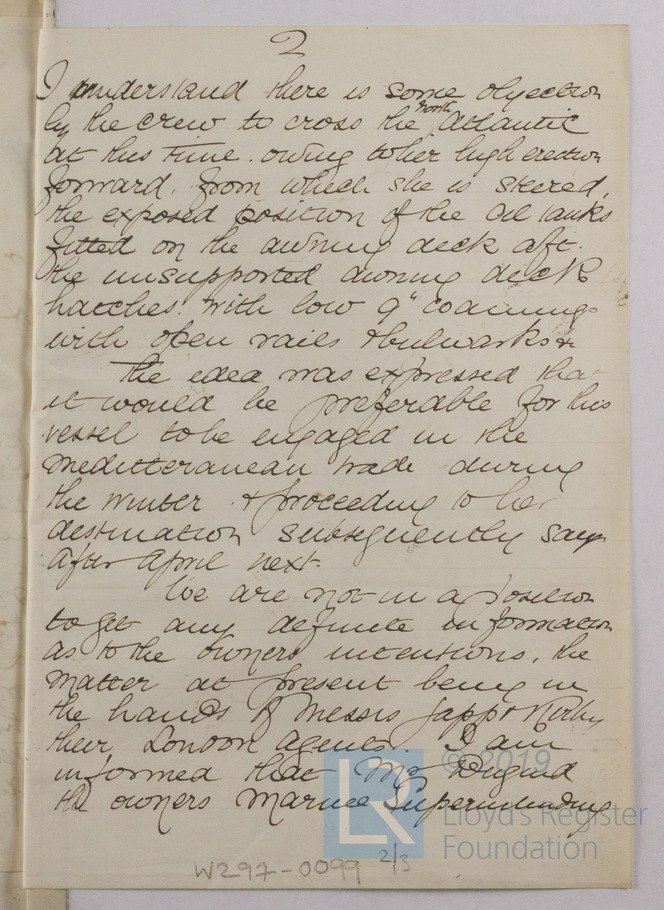 2
I understand there is some objection
by the crew to cross the North Atlantic
at this time. owing to her high erection
forward. from which she is steered,
the exposed position of the oil tanks
fitted on the awning deck aft.
the unsupported awning deck
hatches. with low 9" coamings
with open rails & bulwarks &
The idea was expressed that
it would be preferable for this
vessel to be engaged in the
Meditteranean trade during
the winter & proceeding to her
destination subsequently say
after April next.
We are not in a position
to get any definite information
as to the owners intentions, the
matter at present being in
the hands of Messrs Japp & Kirby
their London agents. I am
informed that Mr
the owners Marine Superintending
W297-0099 2/3
© 2019
Lloyd's Register
Foundation
LR